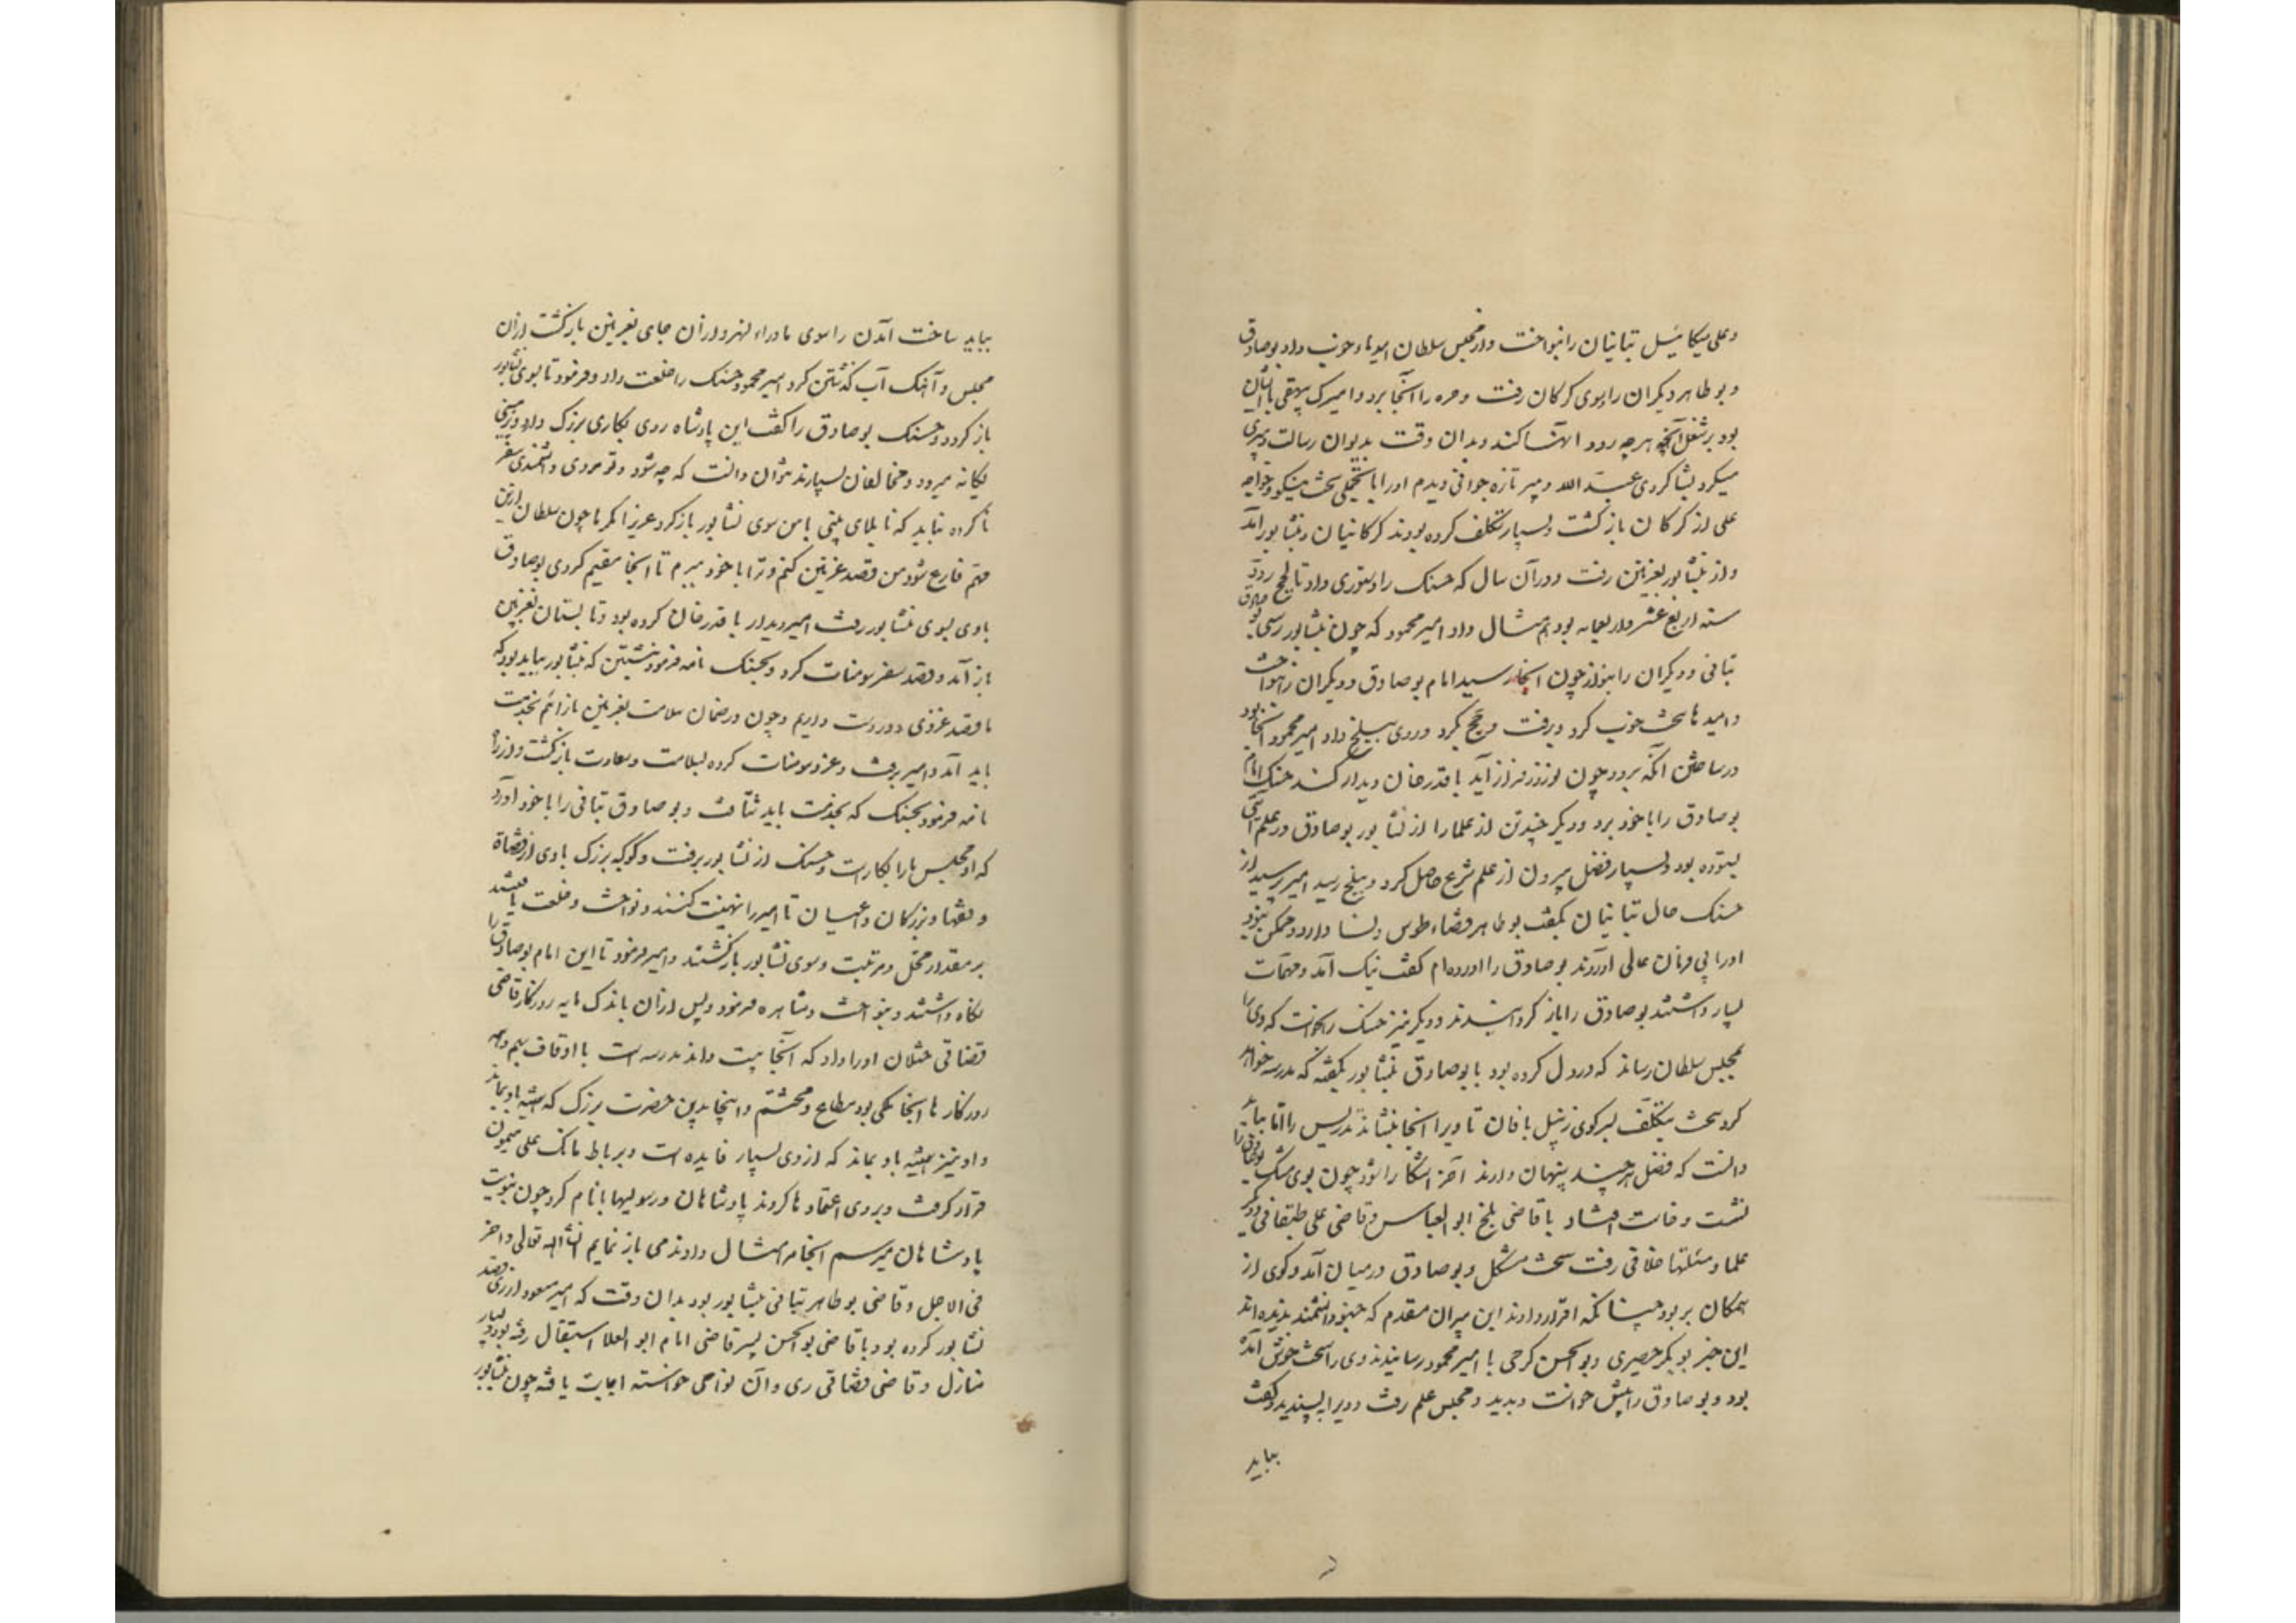 وعلی میکائیل تبانیان را بنواخت واز مجلس سلطان امیدها وخوب داد بوصادق
و بوطاهر ودیگران را وسوی گرگان رفت وحره را آنجا برد وامیرک بیهقی با ایشان
بود بر شغل آنچه هرچه رود انها کند وبدان وقت بدیوان رسالت دبیری
میکرد بشاگردی عبد الله دبیر تازه جوانی دیدم اورا با تجملی سخت نیکو وخواجه
علی از گرگان باز گشت وبسیار تکلف کرده بودند گرگانیان وبنشابور آمد
واز نشابور بغزنین رفت ودر آن سال که حسنک را دستوری داد تا بحج رود
سنه اربع عشر واربعمایه بود هم مثال داد امیر محمود که چون بنشابور رسی بو صادق
تبانی ودیگران را بنواز چون آنجا رسید امام بوصادق ودیگران را بنواخت
وامیدهای سخت خوب کرد وبرفت وحج کرد وروی ببلخ داد امیر محمود آنجا بود
در ساختن آنکه برود چون نوروز فراز آید با قدرخان دیدار کند حسنک امام
بوصادق را با خود برد ودیگر چند تن از علما را از نشابور بوصادق در علم آیتی
ستوده بود وبسیار فضل بیرون از علم شرع حاصل کرد وببلخ رسید امیر پرسید از
حسنک حال تبانیان بگفت بوطاهر قضاء طوس ونسا دارد وممکن نبود
اورا بی فرمان عالی آوردند بوصادق را آورده ام گفت نیک آمد ومهمات
بسیار داشتند بوصادق را باز گردانیدند ودیگر نیز حسنک نخواست که وی را
بمجلس سلطان رساند که در دل کرده بود با بوصادق بنشابور بگفته که مدرسه خواهد
کرد سخت بتکلف بسر کوی زنبیل بافان تا ویرا آنجا بنشاند تدریس را اما بباید
دانست که فضل هر چند پنهان دارند آخر آشکارا شود چون بوی مشک بوصادق را
نشست وخاست افتاد با قاضی بلخ ابو العباس وقاضی علی طبقاقی ودیگر
علما ومسئلتها خلافی رفت سخت مشکل وبوصادق در میان آمد وگوی از
همگان بربود چنانکه اقرار دادند این پیران مقدم که چنو دانشمند ندیده اند
این خبر بوبکر حصیری وبوالحسن کرجی با امیر محمود رسانیدند وی را سخت خوش آمده
بود وبوصادق را پیش خواست وبدید ومجلس علم رفت وویرا بپسندید وگفت
بباید
بباید ساخت آمدن را سوی ماوراء النهر واز آن جای بغزنین بازگشت از آن
مجلس وآهنگ آب گذشتن کرد امیر محمود حسنک را خلعت داد وفرمود تا بسوی نشابور
باز گردد وحسنک بوصادق را گفت این پادشاه روی بکاری بزرگ دارد وزمینی
بیگانه میرود ومخالفان بسیارند نتوان دانست که چه شود وتو مردی دانشمندی سفر
نا کرده نباید که تا بلای بینی با من سوی نشابور باز گرد عزیزا مکرما چون سلطان ازین
مهم فارغ شود من قصد غزنین کنم وترا با خود ببرم تا آنجا مقیم گردی بوصادق
با وی بسوی نشابور رفت امیر دیدار با قدرخان کرده بود وتابستان بغزنین
باز آمد وقصد سفر سومنات کرد وبحسنک نامه فرمود نبشتن که بنشابور بباید بود که
ما قصد غزوی دوردست داریم وچون در ضمان سلامت بغزنین باز آئیم بخدمت
باید آمد وامیر برفت وغزو سومنات کرده بسلامت وسعادت بازگشت واز راه
نامه فرمود بحسنک که بخدمت باید شتافت وبوصادق تبانی را با خود آورد
که او مجلس ما را بکار است وحسنک از نشابور برفت وکوکبه بزرگ با وی از قضاة
وفقها وبزرگان واعیان تا امیر را تهنیت کنند ونواخت وخلعت یافتند
بر مقدار محل ومرتبت وسوی نشابور بازگشتند وامیر فرمود تا این امام بوصادق را
نگاه داشتند وبنواخت ومشاهره فرمود وپس از آن باندک مایه روزگار قاضی
قضاتی ختلان اورا داد که آنجا بیست واند مدرسه است با اوقاف بهم وهمه
روزگارها آنجا ملکی بود مطاع ومحتشم واینجا بدین حضرت بزرگ که همیشه باد بماند
واو نیز همیشه باد بماند که از وی بسیار فایده است وبرباط مانک علی میمون
قرار گرفت وبر وی اعتماد ها کردند پادشاهان ورسولیها با نام کرد چون بنوبت
پادشاهان میرسم آنجا مر امثال دادند می باز نمایم انشاء الله تعالی واخر
فی الاجل وقاضی بوطاهر تبانی بنشابور بود بدان وقت که امیر مسعود از ری قصد
نشابور کرده بود با قاضی بوالحسن پسر قاضی امام ابو العلا استقبال رفته بود وبسیار
منازل وقاضی قضاتی ری وآن نواحی خواسته اجابت یافته چون بنشابور